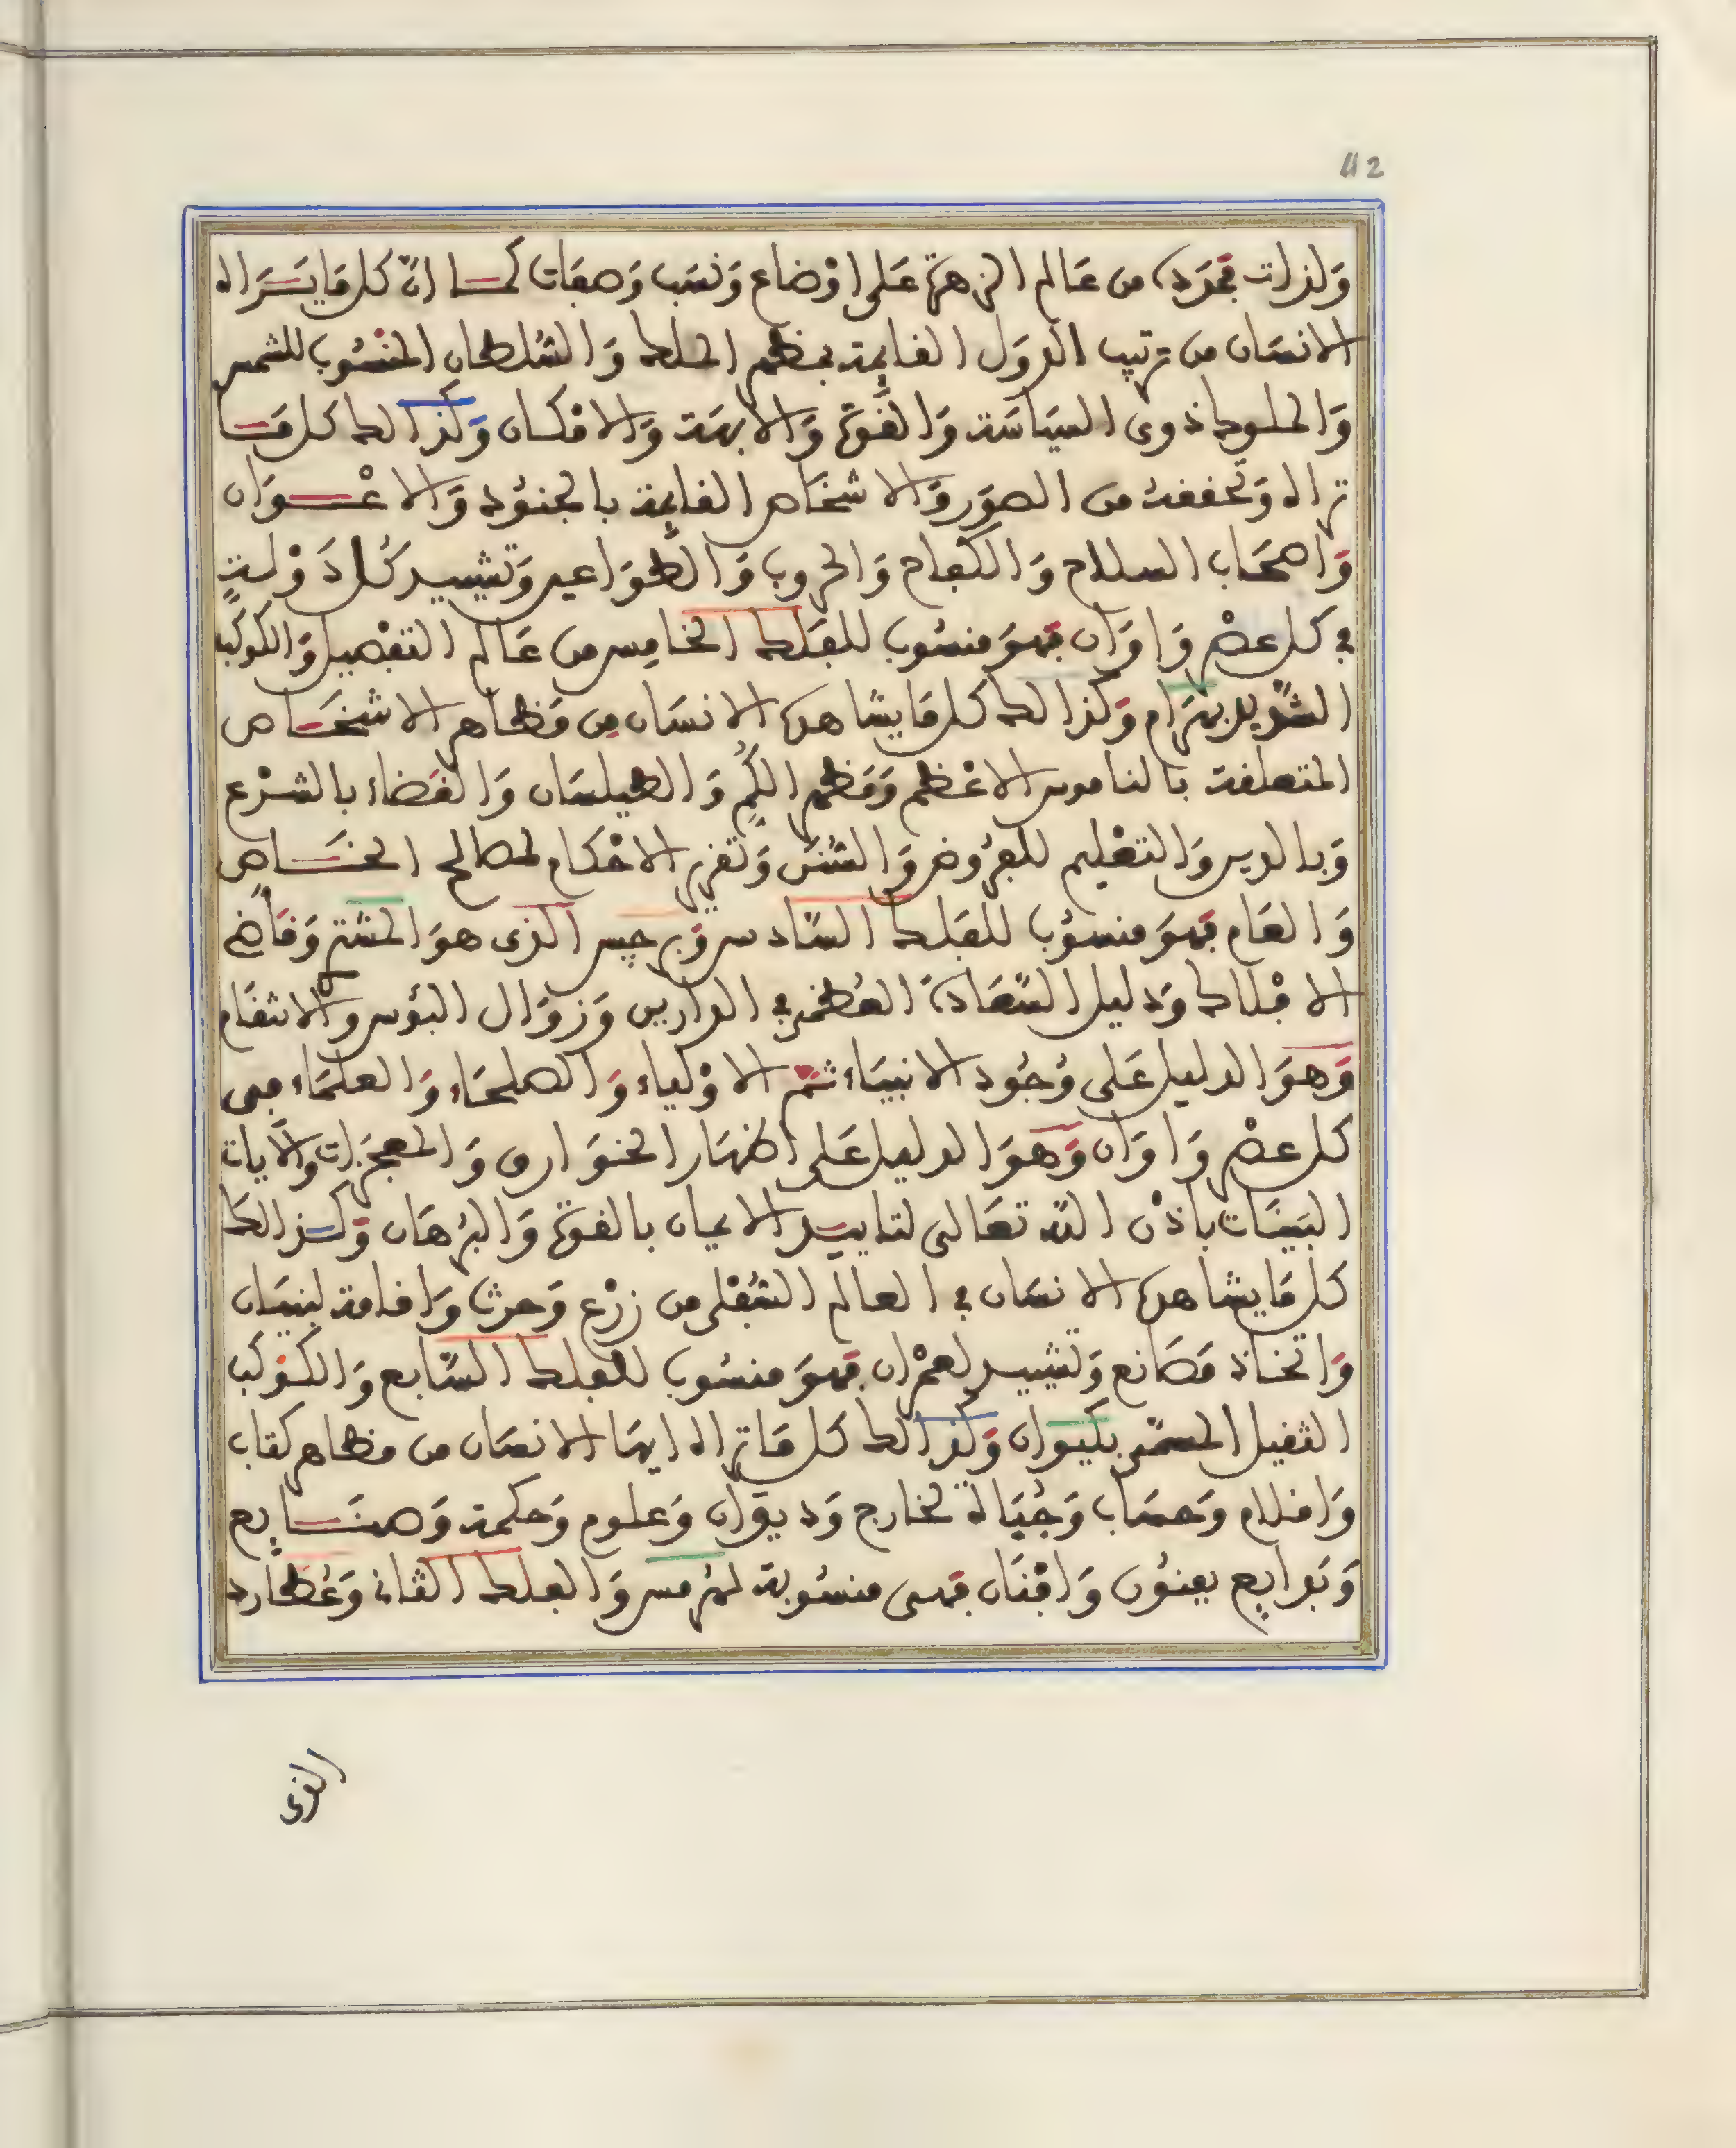 112
ولذات مجردة من عالم الزهرة على اوضاع ونسب وصفات كما ان كل ما يراه
الانسان من ترتيب الدول القايمة بمظهر الملك والسلطان المنسوب للشمس
والملوك ذوى السياسة والقوة والابهة والامكان وكذالك كل ما
تراه وتحققه من الصور والاشخاص القايمة بالجنود والاعوان
واصحاب السلاح والكفاح والحروب والطواعين وتشييد كل دولة
في كل عصر واوان فهو منسوب للفلك الخامس من عالم التفصيل والكوكب
الشديد بهرام وكذالك كل ما يشاهده الانسان من مظاهر الاشخاص
المتعلقة بالناموس الاعظم ومظهر الكم والطيلسان والقضاء بالشرع
وبالدين والتعليم للفروض والسنن وتقرير الاحكام لمصالح الخاص
والعام فهو منسوب للفلك السادس وبرجيس الذى هو المشتر وقاضى
الافلاك ودليل السعادة العظمى في الدارين وزوال البؤس والانتقام
وهو الدليل على وجود الانبياء ثم الاولياء والصلحاء والعلماء فى
كل عصر واوان وهو الدليل على اظهار الخوارق والمعجزات والايات
البينات باذن الله تعالى لتاييد الايمان بالقوة والبرهان وكذالك
كل ما يشاهده الانسان في العالم السفلى من زرع وحرث واقامة لبنيان
واتخاذ مصانع وتشييد لعمران فهو منسوب للفلك السابع والكوكب
الثقيل المسمى بكيوان وكذالك كل ما تراه ايها الانسان من مظاهر كتاب
واقلام وحساب وجباة لخارج وديوان وعلوم وحكمة وصنايع
وبدايع بفنون وافنان فهى منسوبة لهرمس والفلك الثانى وعطارد
الذى